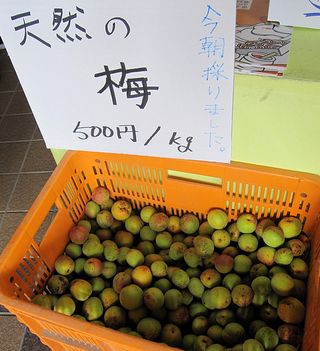 天然の
梅
500円/kg
今朝採りました。